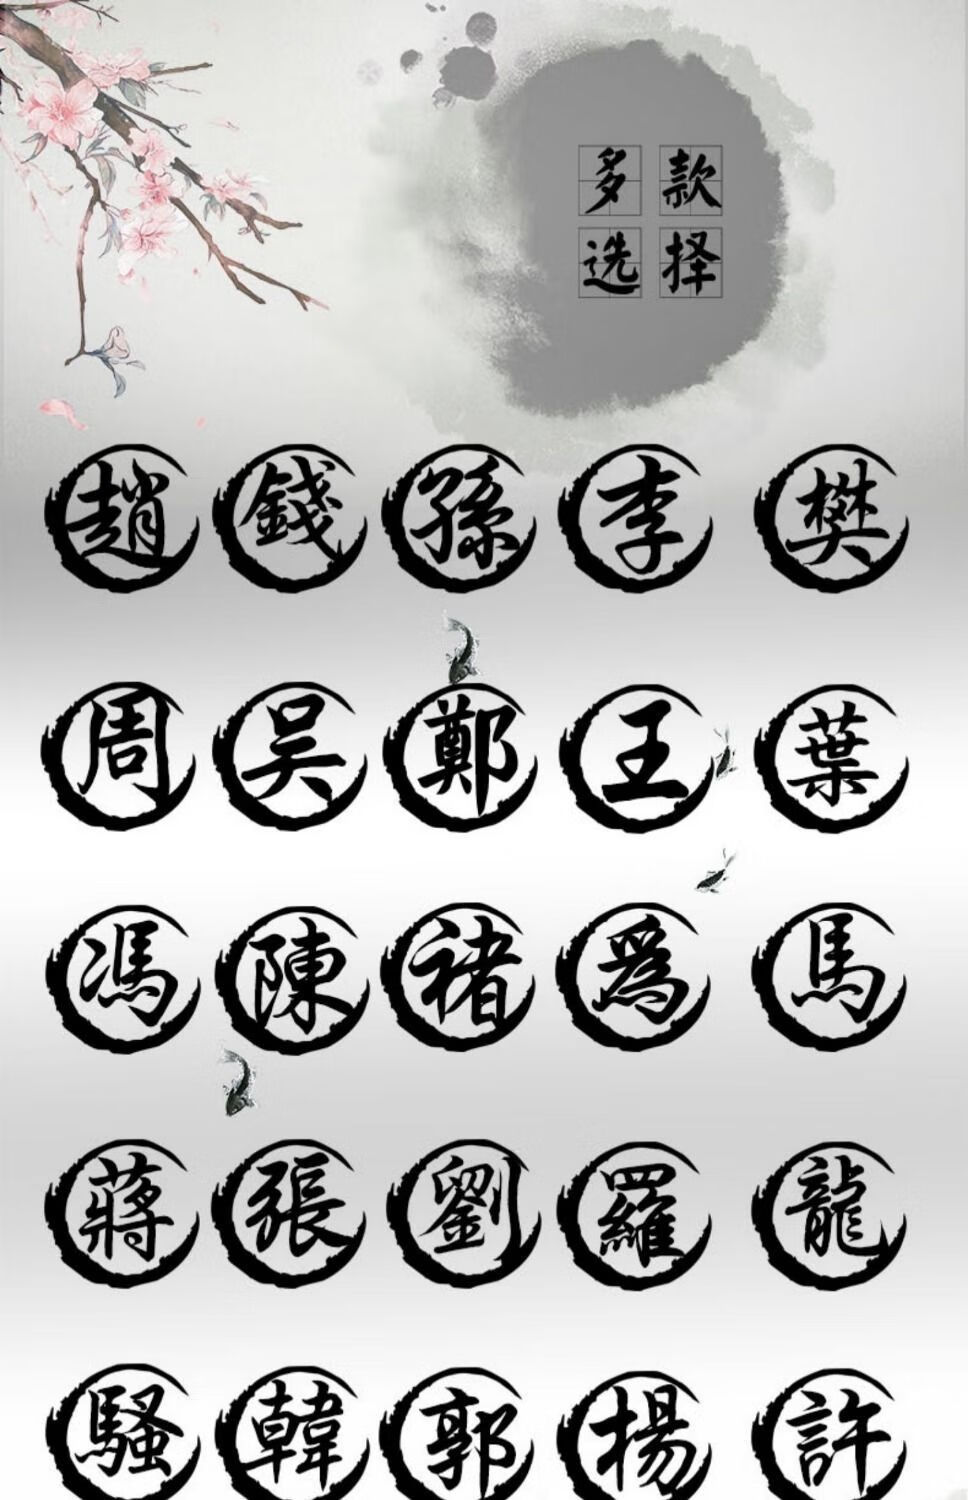 多款
选择
趙 錢 孫 李 樊
周 吴 鄭 王 葉
馮 陳 褚 爲 馬
蔣 張 劉 羅 龍
騷 韓 郭 揚 許